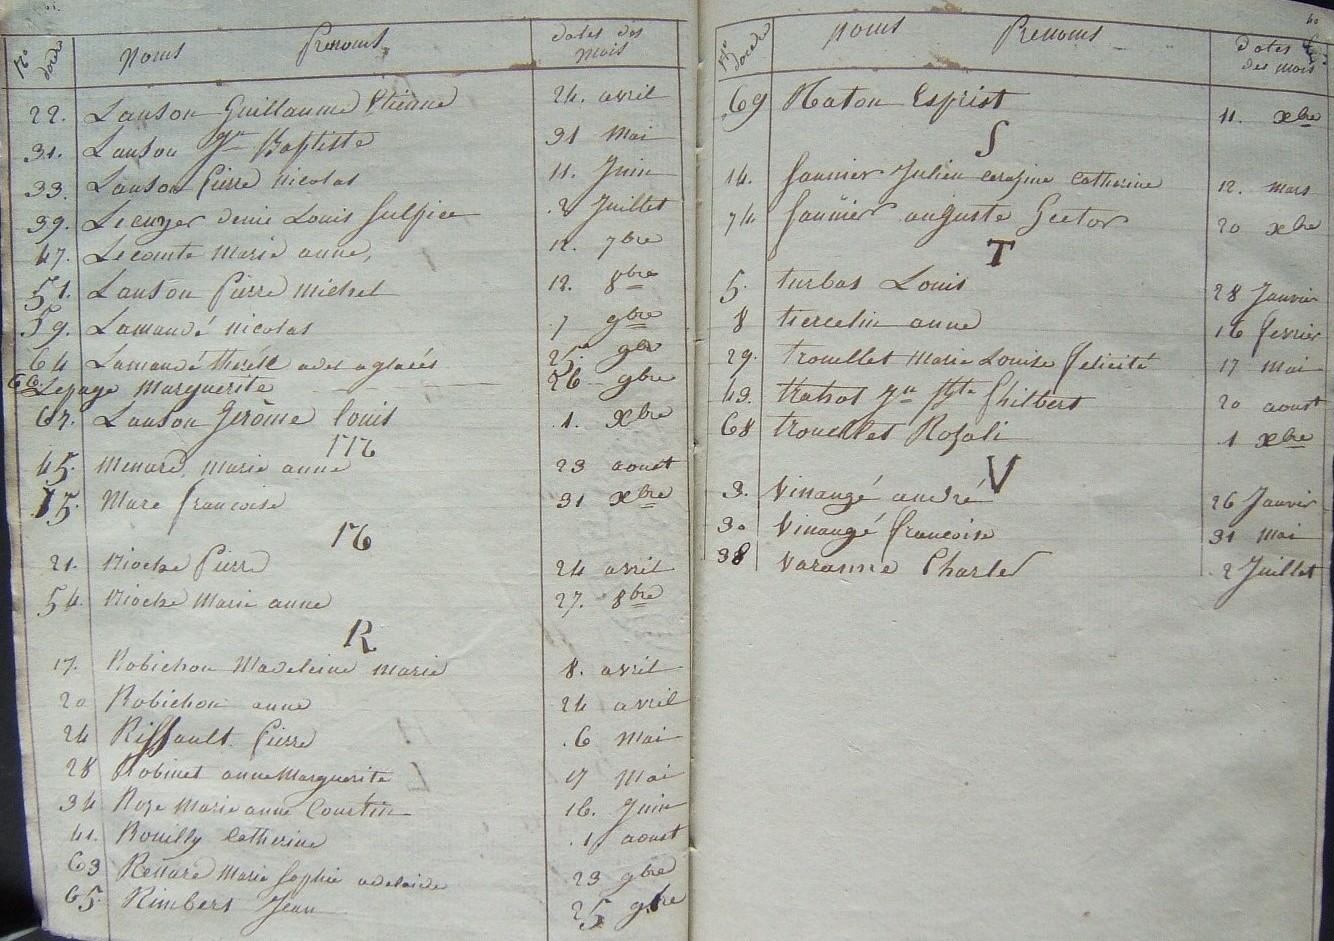 Nos dordre Noms Prenoms dates des mois
22. Lanson Guillaume Etienne 24. avril
31. Lanson Jn Baptiste 31 Mai
33. Lanson Pierre nicolas 11. Juin
39. Lecuyer denie Louis Sulpice 2 Juillet
47. Lecomte Marie anne, 12. 7bre
51. Lanson Pierre michel 12. 8bre
59. Lamandé nicolas 7 9bre
64 Lamandé 25 9bre
66 Lepage Marguerite 26 9bre
67. Lanson Jerôme Louis 1. xbre
M
45. Menard, marie anne 23 aoust
75. Mare francoise 31 xbre
N
21. Nioche Pierre 24 avril
54. Nioche Marie anne 27. 8bre
R
17. Robichon Madeleine marie 8. avril
20 Robichon anne 24 avril
24 Riffault Pierre 6 mai
28 Robinet anne Marguerite 17 Mai
34 Roze Marie anne Courtin 16. Juin
41. Rouilly Catherine 1 aoust
63 Marie Sophie adelaide 23 9bre
65. Rimbert Jean 25 9bre
40
Nos dordre Noms Prenoms dates des mois
69 Raton Esprist 11. xbre
S
14. Saunier Julien cerafine Catherine 12. mars
74 Saunier auguste 20 xbre
T
5. turbat Louis 28 Janvier
8 tiercelin anne 16 fevrier
29. trouillet Marie Louise felicité 17 mai
43. Jn Bte Philbert 20 aoust
68 trouillet Rosali 1 xbre
V
3. Vinangé andré 26 Janvier
30 Vinangé francoise 31 mai
38 Varanne Charles 2 Juillet